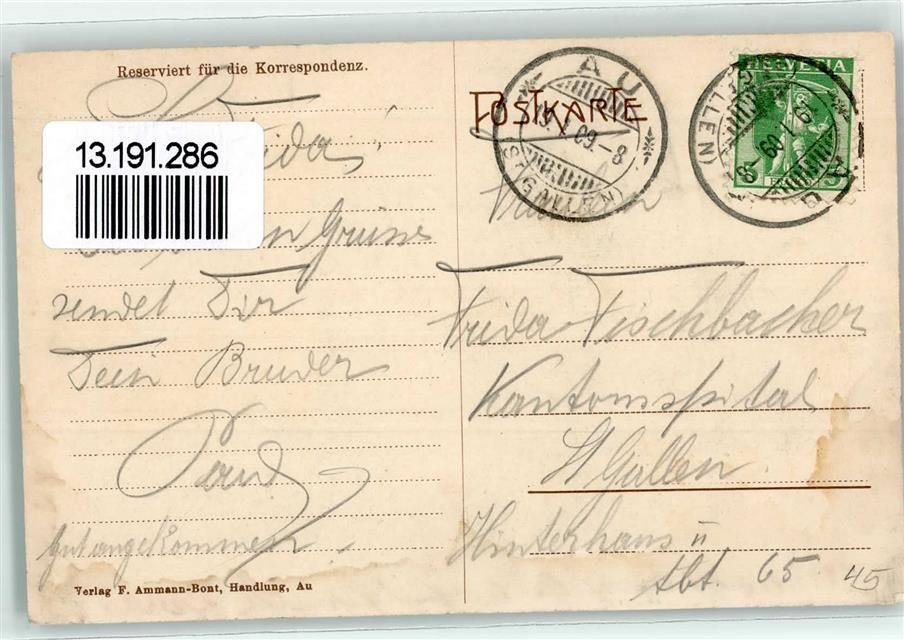 Reserviert für die Korrespondenz.
13.191.286
Grüsse
sendet Dir
Dein Bruder
Paul
gut angekommen.
Verlag F. Ammann-Bont, Handlung, Au
POSTKARTE
AU
09.-8
(ST. GALLEN)
HELVETIA
Frida Fischbacher
Kantonsspital
St Gallen
Hinterhaus
Abt. 65
45